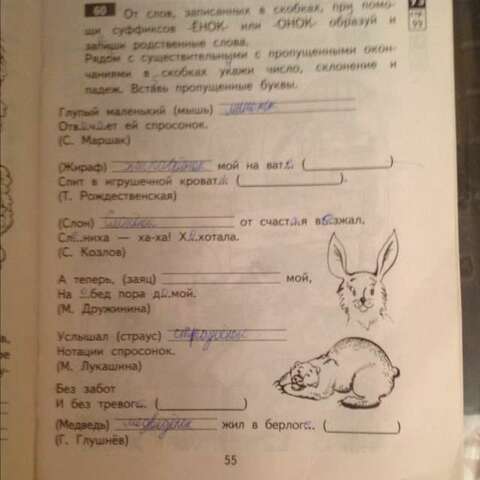 60 От слов, записанных в скобках, при помо-
щи суффиксов -ЁНОК- или -ОНОК- образуй и
запиши родственные слова.
Рядом с существительными с пропущенными окон-
чаниями в скобках укажи число, склонение и
падеж. Вставь пропущенные буквы.
Глупый маленький (мышь)
Отвечает ей спросонок.
(С. Маршак)
(Жираф) мой на вате (
Спит в игрушечной кровати ( ).
(Т. Рождественская)
(Слон) слонёнок от счастья визжал.
Слониха — ха-ха! Хохотала.
(С. Козлов)
А теперь, (заяц) мой,
На обед пора домой.
(М. Дружинина)
Услышал (страус) страусёнок
Нотации спросонок.
(М. Лукашина)
Без забот
И без тревог ( )
(Медведь) медвежонок жил в берлоге. ( )
(Г. Глушнёв)
55
99